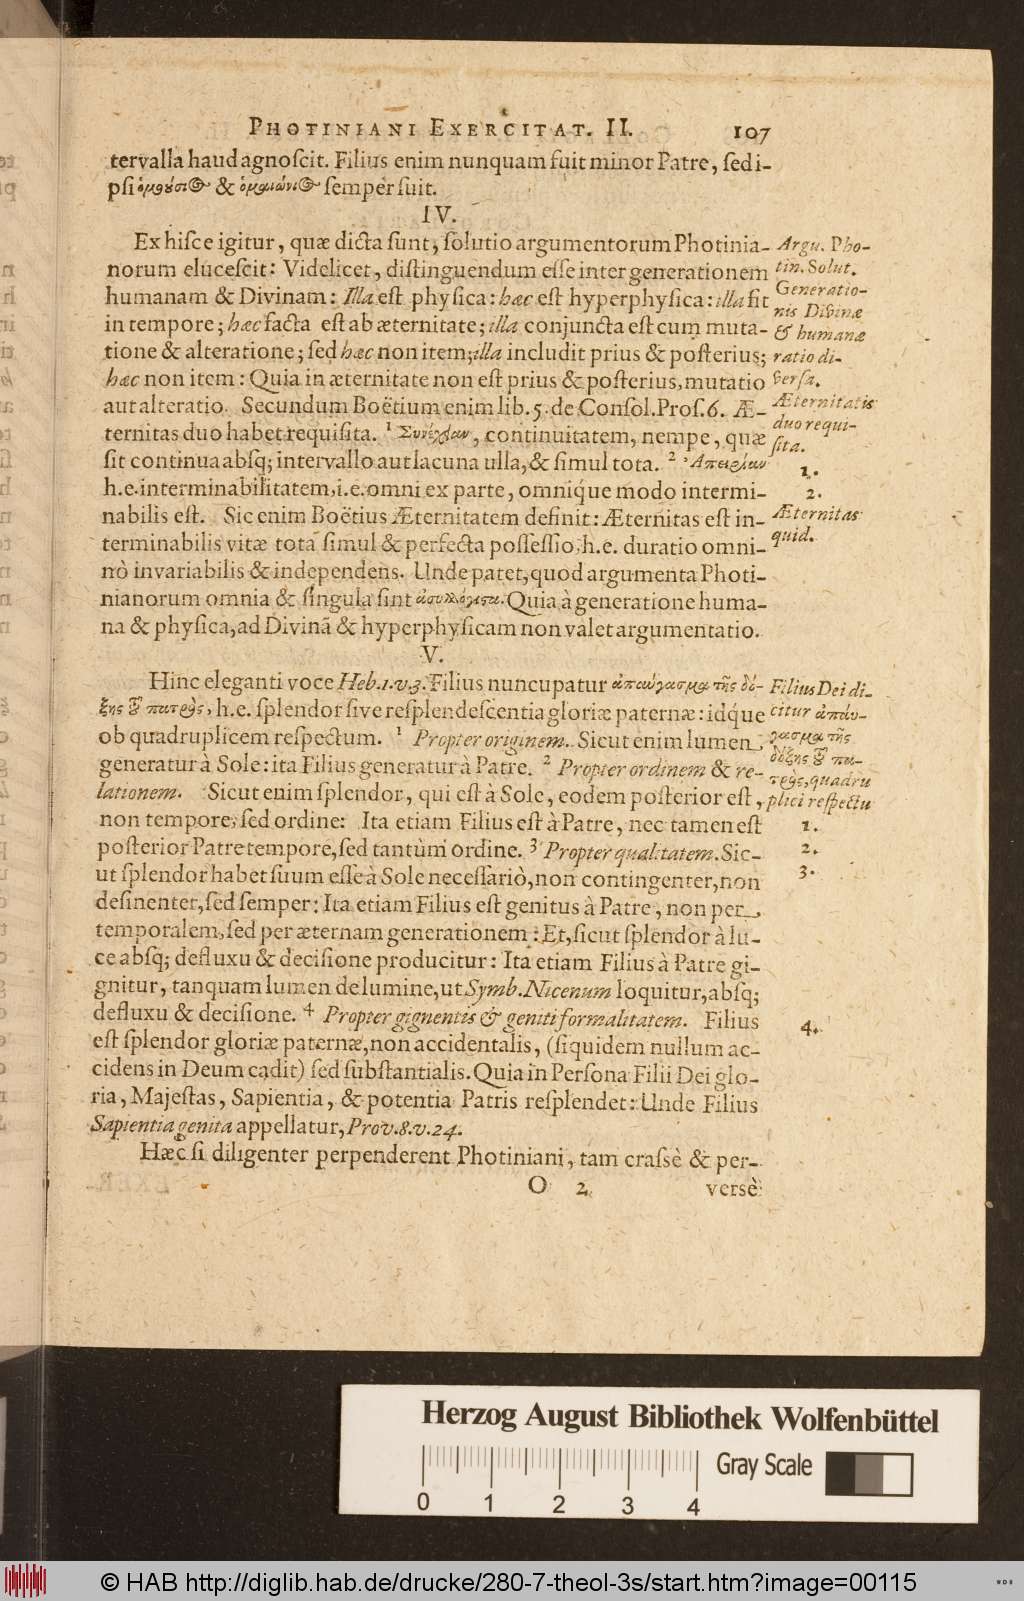 PHOTINIANI EXERCITAT. II. 107
tervalla haud agnoſcit. Filius enim nunquam fuit minor Patre, ſed i-
pſi ὁμούσι & ὁμαιώνι ſempèr fuit.
IV.
Ex hiſce igitur, quæ dicta ſunt, ſolutio argumentorum Photinia-
norum eluceſcit: Videlicet, diſtinguendum eſſe inter generationem
humanam & Divinam: Illa eſt phyſica: hæc eſt hyperphyſica: illa fit
in tempore; hæc facta eſt ab æternitate; illa conjuncta eſt cum muta-
tione & alteratione; ſed hæc non item; illa includit prius & poſterius;
hæc non item: Quia in æternitate non eſt prius & poſterius, mutatio
aut alteratio. Secundum Boëtium enim lib. 5. de Conſol. Proſ. 6. Æ-
ternitas duo habet requiſita. 1 Συνέχειαν, continuitatem, nempe, quæ
ſit continua abſq; intervallo aut lacuna ulla, & ſimul tota. 2 Ἀπειρείαν
h. e. interminabilitatem, i. e. omni ex parte, omniq́ue modo intermi-
nabilis eſt. Sic enim Boëtius Æternitatem definit: Æternitas eſt in-
terminabilis vitæ tota ſimul & perfecta poſſeſſio, h. e. duratio omni-
nò invariabilis & independens. Unde patet, quod argumenta Photi-
nianorum omnia & ſingula ſint ἀσυλλόγιστα. Quia à generatione huma-
na & phyſica, ad Divinã & hyperphyſicam non valet argumentatio.
V.
Hinc eleganti voce Heb. 1. v. 3. Filius nuncupatur ἀπαύγασμα τῆς δό-
ξης τȣ͂ πατρὸς, h. e. ſplendor ſive reſplendeſcentia gloriæ paternæ: idq́ue
ob quadruplicem reſpectum. 1 Propter originem. Sicut enim lumen
generatur à Sole: ita Filius generatur à Patre. 2 Propter ordinem & re-
lationem. Sicut enim ſplendor, qui eſt à Sole, eodem poſterior eſt,
non tempore, ſed ordine: Ita etiam Filius eſt à Patre, nec tamen eſt
poſterior Patre tempore, ſed tantùm ordine. 3 Propter qualitatem. Sic-
ut ſplendor habet ſuum eſſe à Sole neceſſariò, non contingenter, non
deſinenter, ſed ſemper: Ita etiam Filius eſt genitus à Patre, non per
temporalem, ſed per æternam generationem: Et, ſicut ſplendor à lu-
ce abſq; defluxu & deciſione producitur: Ita etiam Filius à Patre gi-
gnitur, tanquam lumen de lumine, ut Symb. Nicenum loquitur, abſq;
defluxu & deciſione. 4 Propter gignentis & geniti formalitatem. Filius
eſt ſplendor gloriæ paternæ, non accidentalis, (ſiquidem nullum ac-
cidens in Deum cadit) ſed ſubſtantialis. Quia in Perſona Filii Dei glo-
ria, Majeſtas, Sapientia, & potentia Patris reſplendet: Unde Filius
Sapientia genita appellatur, Prov. 8. v. 24.
Hæc ſi diligenter perpenderent Photiniani, tam craſsè & per-
O 2 versè
Argu. Pho-
tin. Solut.
Generatio-
nis Divinæ
& humanæ
ratio di-
verſa.
Æternitatis
duo requi-
ſita.
1.
2.
Æternitas
quid.
Filius Dei di-
citur ἀπαύ-
γασμα τῆς
δόξης τȣ͂ πα-
τρὸς, quadru
plici reſpectu
1.
2.
3.
4.
Herzog August Bibliothek Wolfenbüttel
0 1 2 3 4
Gray Scale
© HAB http://diglib.hab.de/drucke/280-7-theol-3s/start.htm?image=00115